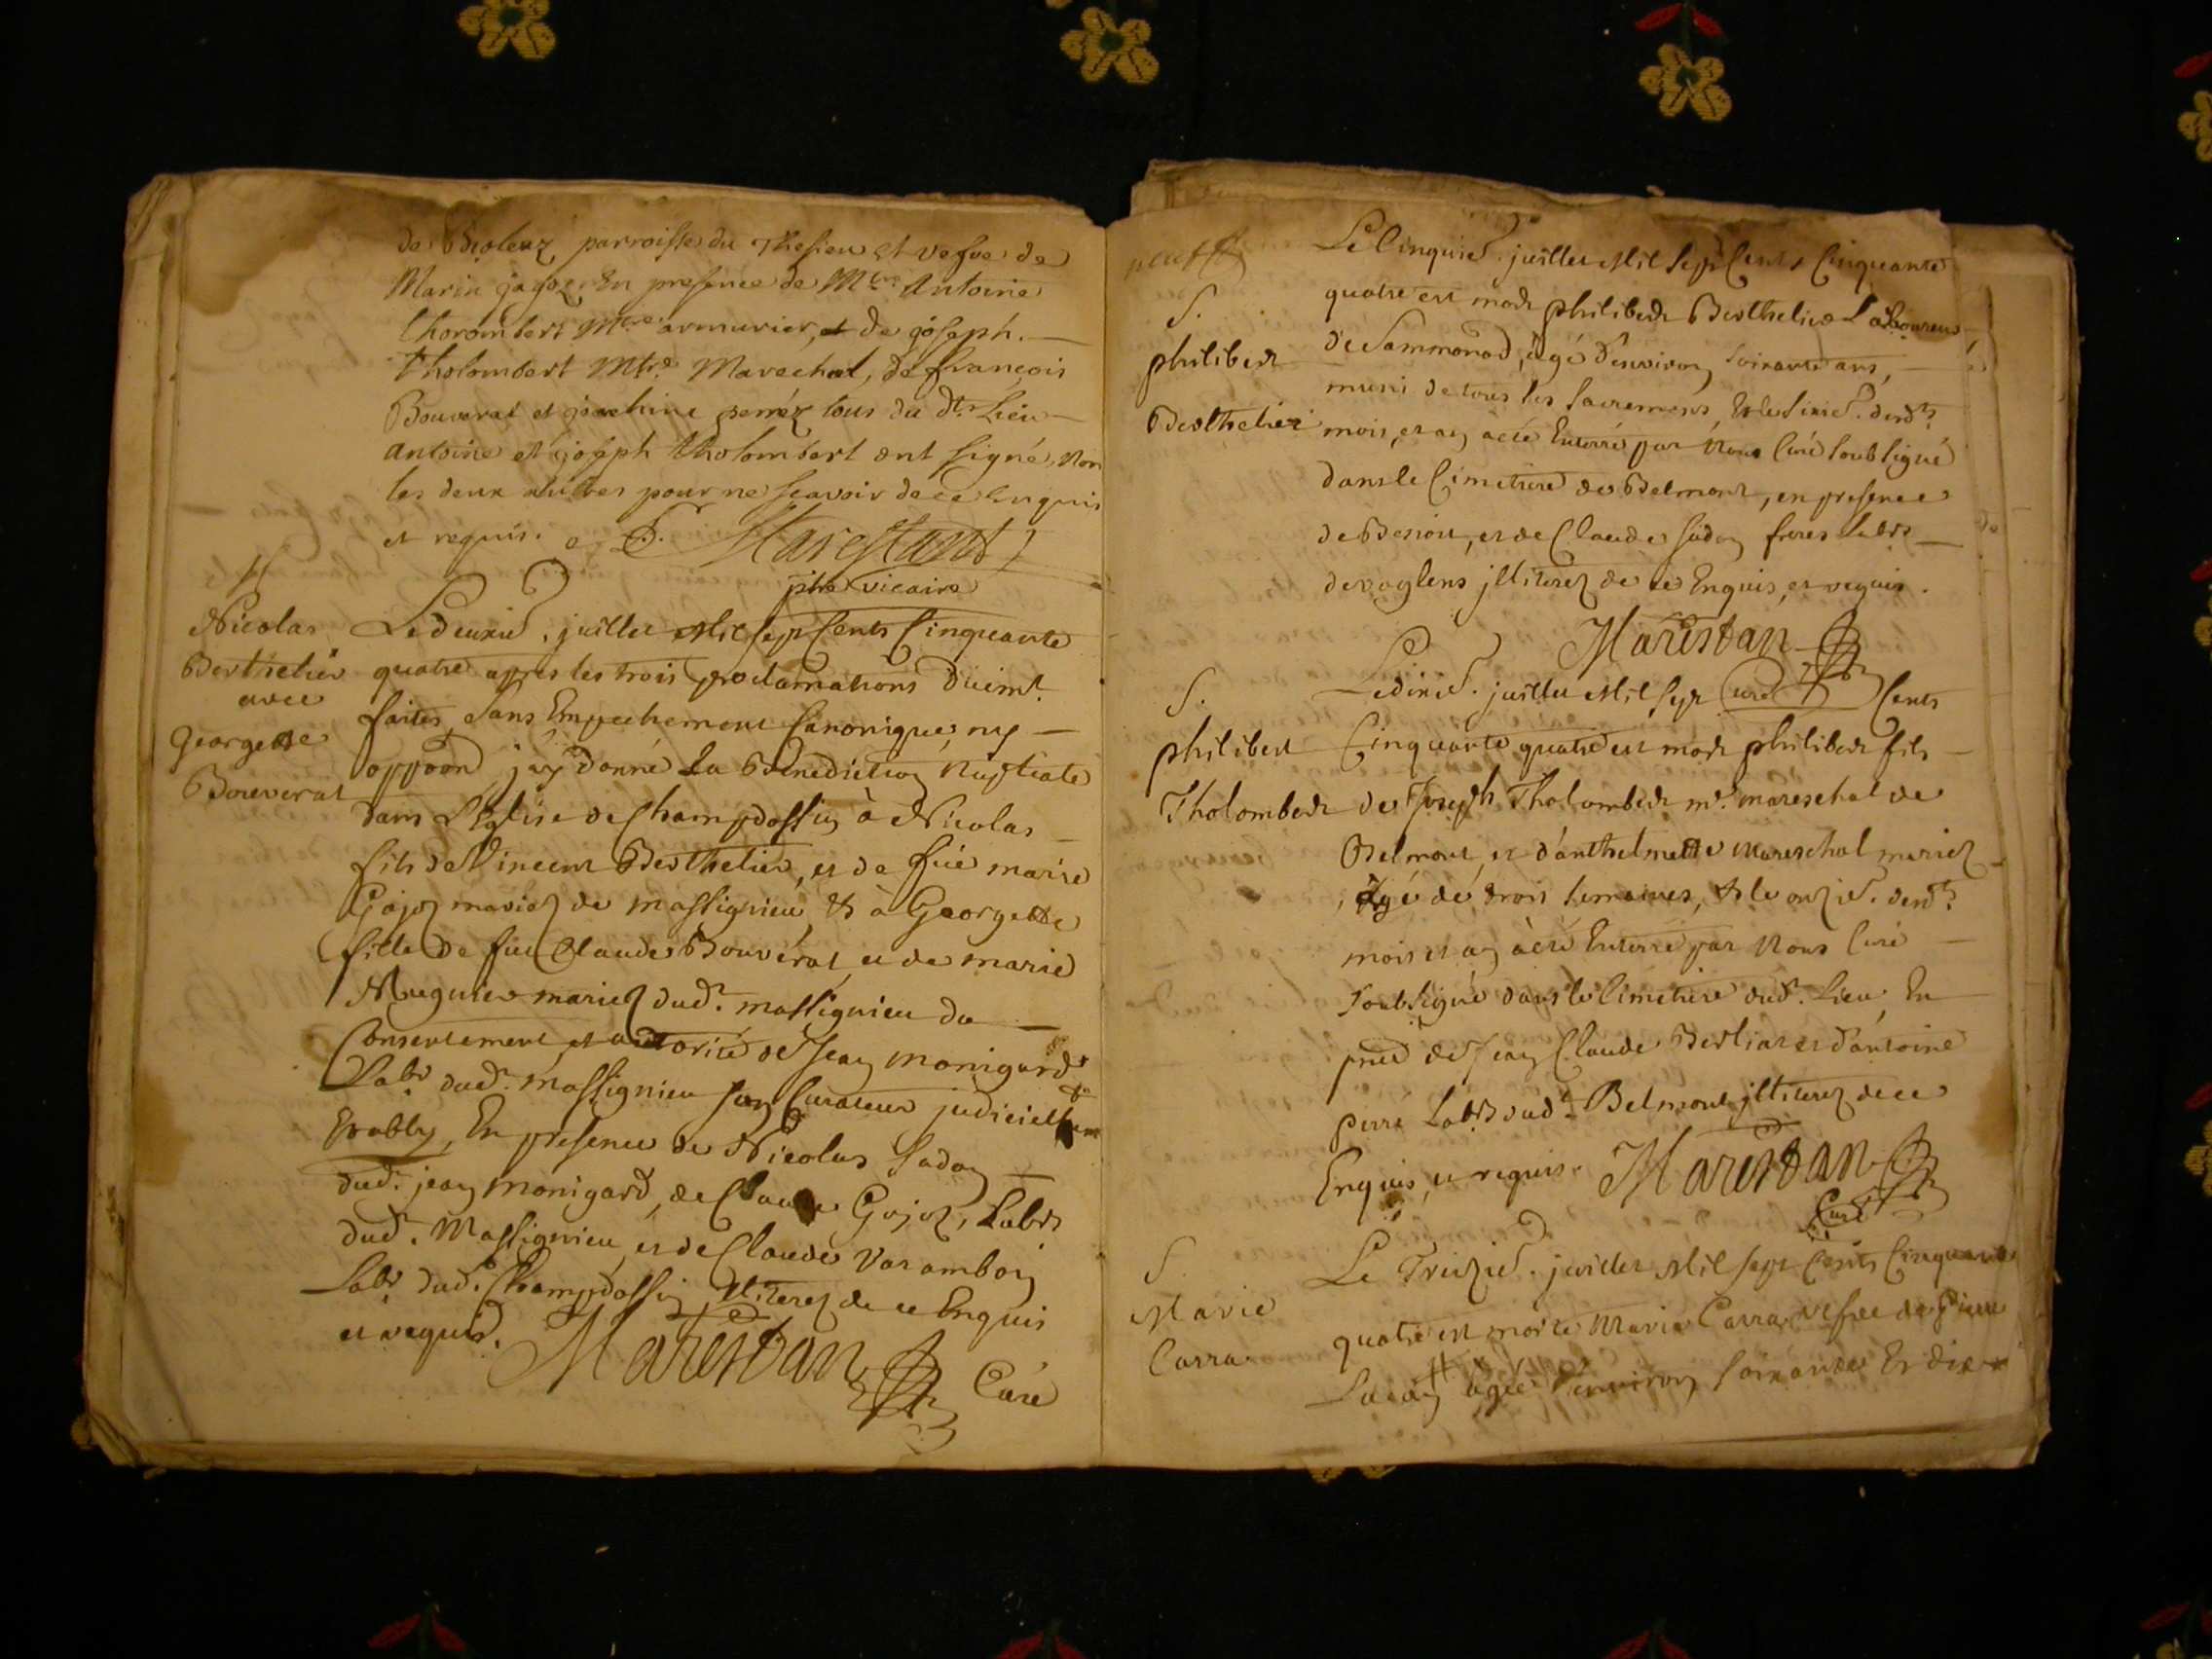 parroisse du Thesieu et vefve de
Marin gagoz En presence de Mtre Antoine
thorombert Mtre armurier, et de joseph.
tholombert Mtre Marechal, de françois
Bouverat et perréz tous du dt Lieu
antoine et joseph tholombert ont signé, Non
les deux autres pour ne scavoir de ce Enquis
et requis. Marestant
ptre vicaire
Nicolas
Berthelier
avec
Georgette
Bouverat
Le deuxie. juillet Mil sept Cents Cinquante
quatre apres les trois proclamations duemt.
faites, sans Empechement Canonique, ny
oppoon j'ay donné La Benediction Nuptiale
dans L'Eglise de Champdossin à Nicolas
fils de Vincent Berthelier, et de füe marie
Gojoz mariez de massignieu, & à Georgette
fille de feu Claude Bouverat, et de marie
Muguier mariez dudt. massignieu du
Consentement, et auctorité de Jean monigard
Labr dudt. massignieu son Curateur judiciellem
Etably, En presence de Nicolas Sadon
dudt. jean monigard, de Claude Gojoz, Labrs
dudt. Massignieu, et de Claude Varambon
Labr dudt. Champdossin illiterez de ce Enquis
et requis. Marestan Curé
S.
philibert
Berthelier
Le Cinquie. juillet Mil Sept Cents Cinquante
quatre est mort philibert Berthelier Laboureur
de Sammonod, âgé d'environ soixante ans,
muni de tous les Sacremens, Et le sixie. dudt
mois, et an a été Enterré par Nous Curé soubsigné
dans le Cimetiere de Belmont, en presence
de Benoit, et de Claude Sadon freres Labrs
de voglens illiterez de ce Enquis, et requis.
Marestan
Curé
S.
philibert
Tholombert
Le dixie. juillet Mil sept Cents
Cinquante quatre est mort philibert fils
de Joseph Tholombert me. mareschal de
Belmont, et d'anthelmette Mareschal mariez
âgé de trois semaines, & le onzie. dudt
mois et an à été Enterré par Nous Curé
soubsigné dans le Cimetiere dudt. Lieu, En
pnce de Jean Claude Berliat et d'antoine
perré Labrs dudt Belmont illiterez de ce
Enquis, et requis. Marestan
Curé
S.
Marie
Carra
Le Treizie. juillet Mil sept Cents Cinquante
quatre est morte Marie Carra vefve de Pierre
agée d'environ soixante Et dix